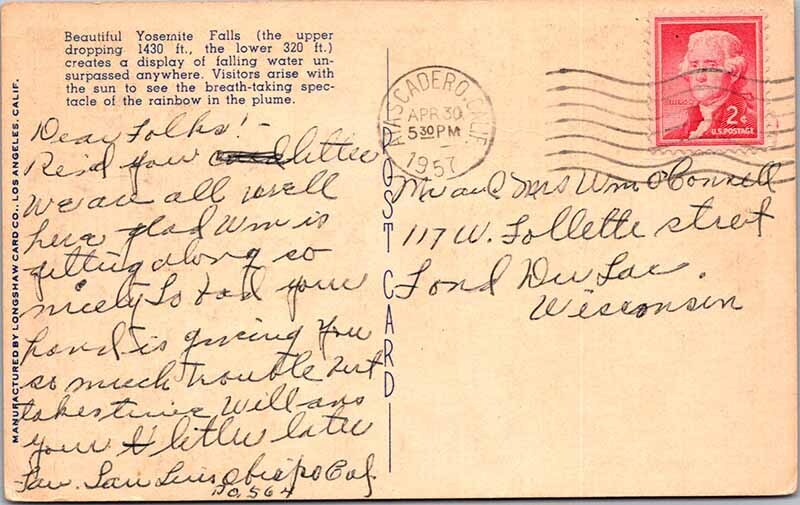 Beautiful Yosemite Falls (the upper
dropping 1430 ft., the lower 320 ft.)
creates a display of falling water un-
surpassed anywhere. Visitors arise with
the sun to see the breath-taking spec-
tacle of the rainbow in the plume.
MANUFACTURED BY LONGSHAW CARD CO., LOS ANGELES, CALIF.
POST CARD
ATASCADERO, CALIF.
APR 30
5 30 PM
1957
2¢
U.S. POSTAGE
Dear Folks! -
Recd your letter
we are all well
here glad Wm is
getting along so
nicely So bad your
hand is giving you
so much trouble but
takes time Will ans
your letter later
San Luis Obispo Cal
564
Mr and Mrs Wm O'Connell
117 W. Follette street
Fond Du Lac.
Wisconsin